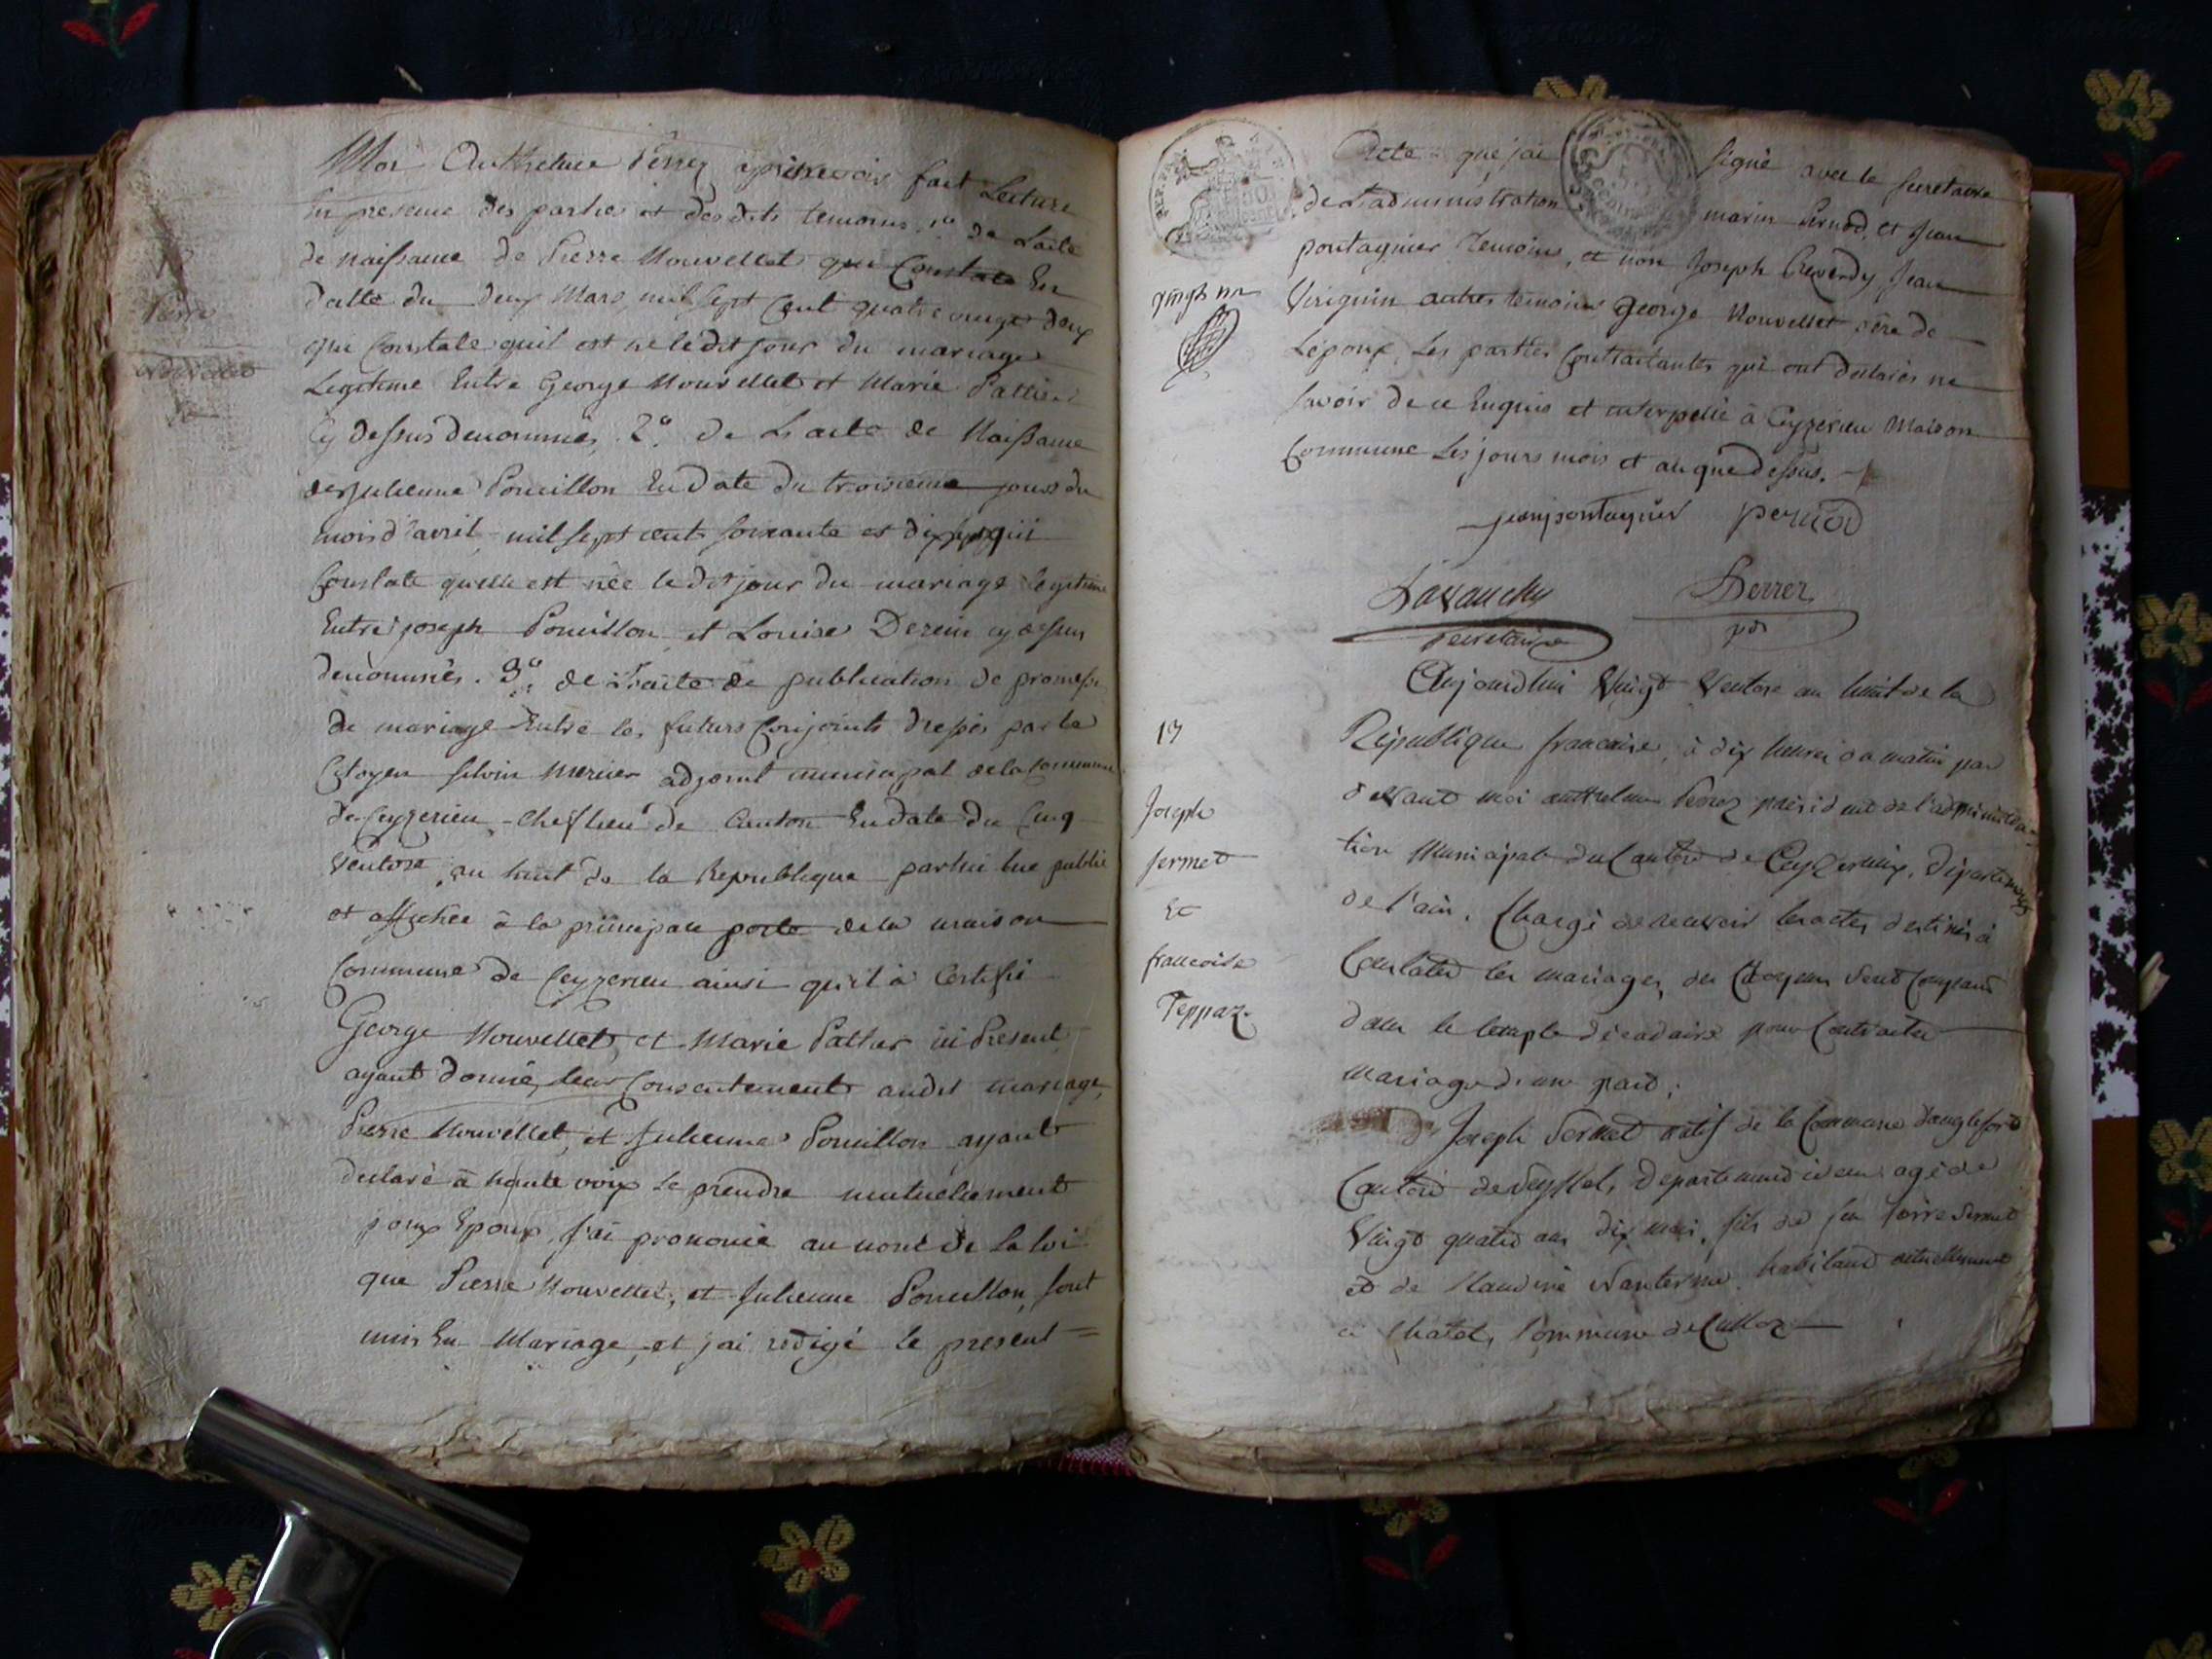 Moi Anthelme Perrez apres avoir fait Lecture
En presence des parties et desdits temoins 1° de L'acte
de naissance de Pierre Nouvellet qui Constate En
datte du deux Mars mil sept Cent quatre vingt deux
que Constate quil est né ledit jour du mariage
Legitime Entre George Nouvellet et Marie Pallier
Cy dessus denommés, 2° De L'acte de Naissance
de Julienne Poncillon En date du troisieme jour du
mois d'avril mil sept cent soixante et dix qui
Constate quelle est née ledit jour du mariage legitime
Entre joseph Poncillon et Louise Cy dessus
denommés. 3° de L'acte de publication de promesse
de mariage Entre les futurs Conjoints dressés par le
Citoyen Mercier adjoint municipal de la Commune
de Ceyzerieu, Chef lieu de Canton En date du Cinq
Ventose an huit de la Republique par lui lue publié
et affichée à la principale porte de la maison
Commune de Ceyzerieu ainsi qu'il à Certifié
George Nouvellet, et Marie Pallier ici Present
ayant donné leur Consentement audit mariage,
Pierre Nouvellet, et Julienne Poncillon ayant
declaré à haute voix se prendre mutuellement
pour Epoux, J'ai prononcé au nom de la loi
que Pierre Nouvellet, et Julienne Poncillon, sont
unis En Mariage, et j'ai redigé le present =
Pierre
Nouvellet
Acte que j'ai signé avec le secretaire
de L'administration marin Pernod, et Jean
pontagnier Temoins, et non Joseph Jean
autres temoins George Nouvellet père de
L'époux, Les parties Contractantes qui ont declarés ne
savoir de ce Enquis et interpellé à Ceyzerieu Maison
Commune Les jours mois et an que dessus.
jean pontagnier pernod
Perrez
secretaire pdt
Aujourdhui Vingt Ventose an huit de la
République française, à dix heures du matin par
devant moi anthelme Perrez président de l'administra-
tion Municipale du Canton de Ceyzerieux, Département
de l'ain, Chargé de recevoir les actes destinés à
Constater les mariages, des Citoyens sont Comparus
dans le temple décadaire pour Contracter
mariage d'une part;
Joseph Sermet natif de la Commune danglefort
Canton de Seyssel, Departement idem agé de
Vingt quatre ans dix mois, fils de feu Pierre Sermet
et de Claudine habitant actuellement
à Chatel, Commune de Culloz
19
Joseph
Sermet
Et
francoise
Teppaz.